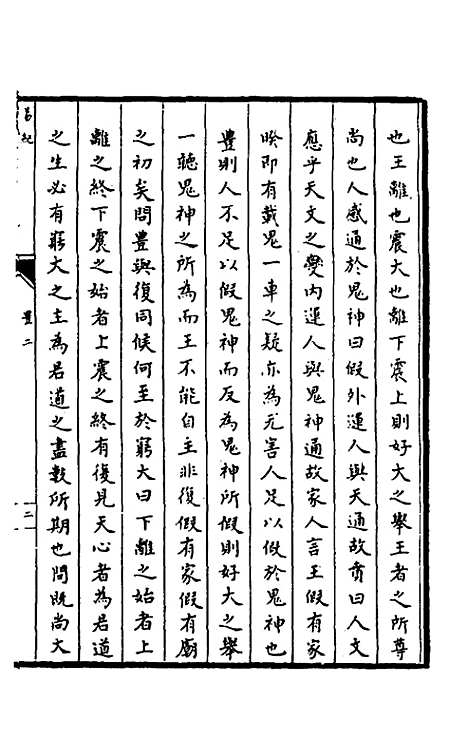 也王離也震大也離下震上則好大之舉王者之所尊
尚也人感通於鬼神曰假外運人與天通故賁曰人文
應乎天文之變内運人與鬼神通故家人言王假有家
睽即有載鬼一車之疑亦為无害人足以假於鬼神也
豊則人不足以假鬼神而反為鬼神所假則好大之舉
一聽鬼神之所為而王不能自主非復假有家假有廟
之初矣問豊與復同候何至於窮大曰下離之始者上
離之終下震之始者上震之終有復見天心者為君道
之生必有窮大之主為君道之盡數所期也問既尚大
易紀
豊二
二